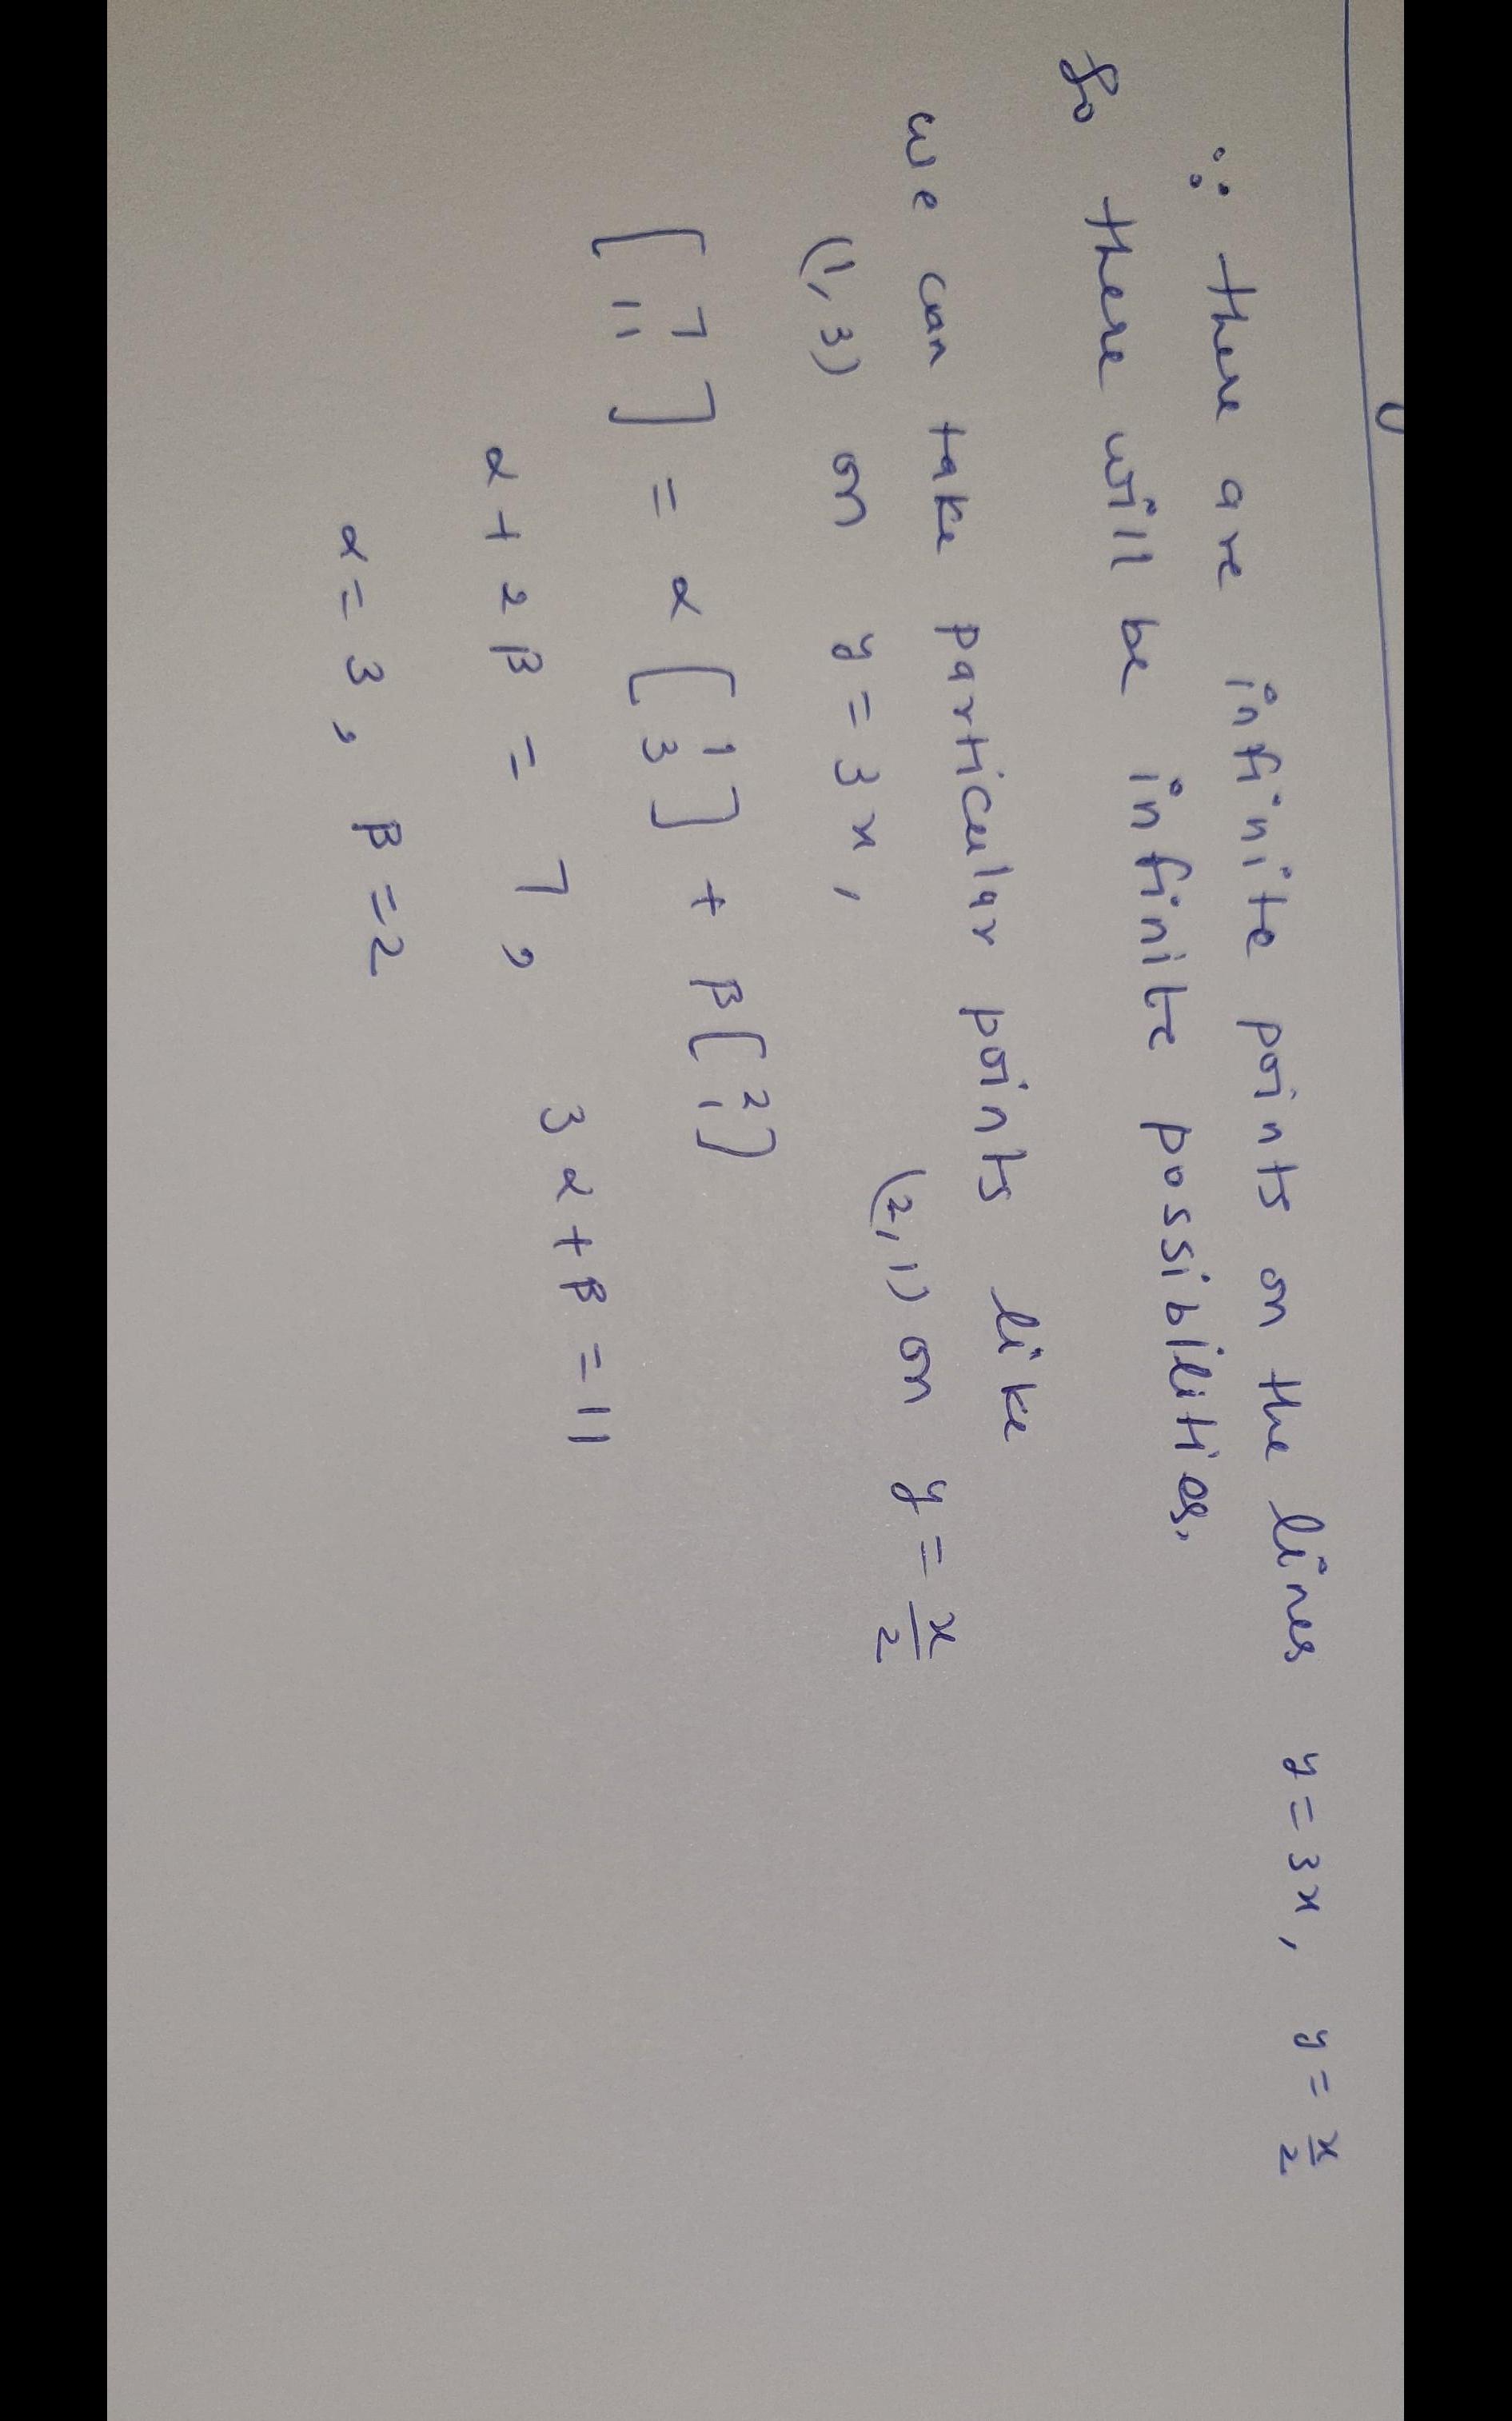 ∵ there are infinite points on the lines y = 3x, y = x/2
So there will be infinite possibilities.
we can take particular points like
(1, 3) on y = 3x, (2, 1) on y = x/2
[7 11] = α [1 3] + β [2 1]
α + 2β = 7, 3α + β = 11
α = 3, β = 2